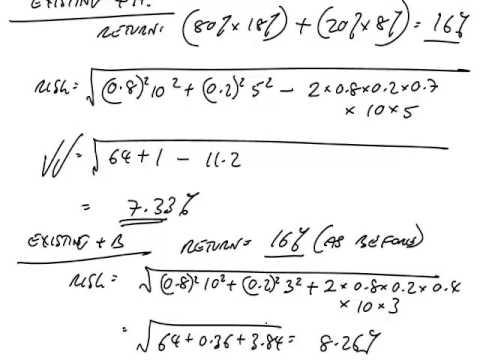 EXISTING + A:
RETURN: (80% × 18%) + (20% × 8%) = 16%
RISK = √(0.8)² 10² + (0.2)² 5² − 2 × 0.8 × 0.2 × 0.7
× 10 × 5
= √64 + 1 − 11.2
= 7.33%
EXISTING + B RETURN = 16% (AS BEFORE)
RISK = √(0.8)² 10² + (0.2)² 3² + 2 × 0.8 × 0.2 × 0.4
× 10 × 3
= √64 + 0.36 + 3.84 = 8.26%